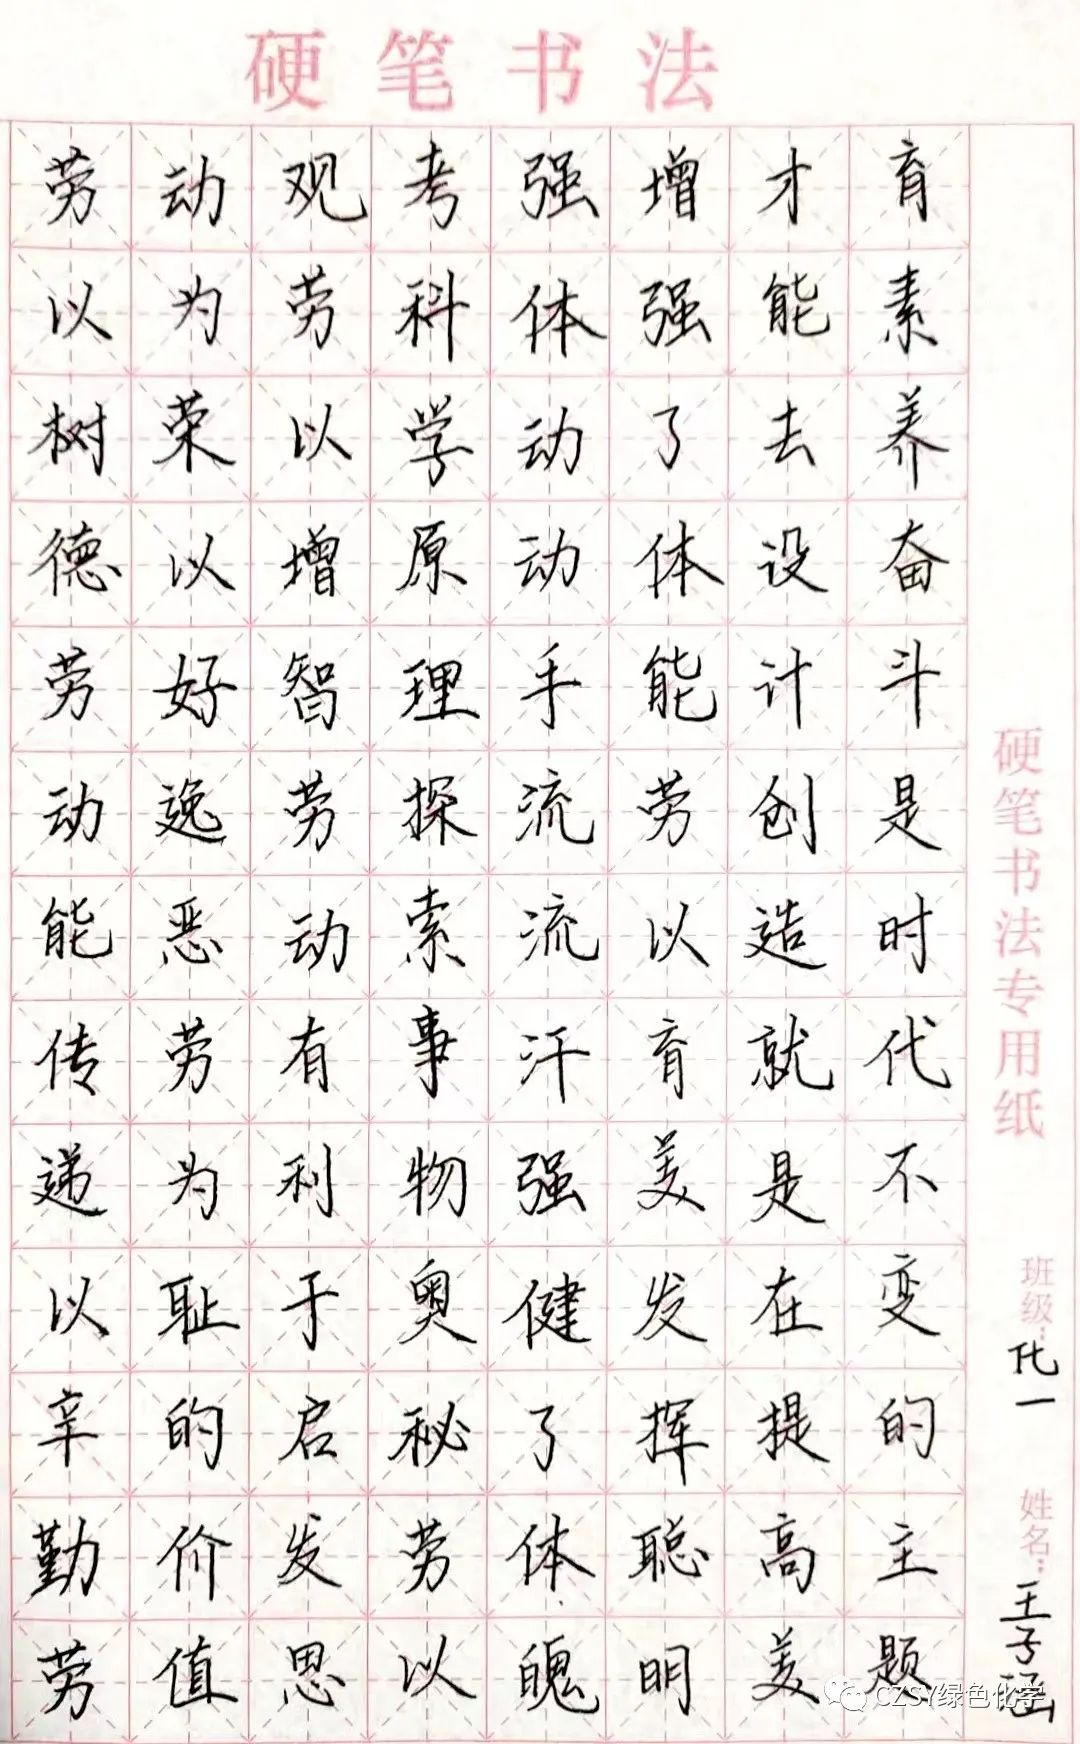 硬笔书法
劳以树德劳动能传递以辛勤劳
动为荣以好逸恶劳为耻的价值
观劳以增智劳动有利于启发思
考科学原理探索事物奥秘劳以
强体动动手流流汗强健了体魄
增强了体能劳以育美发挥聪明
才能去设计创造就是在提高美
育素养奋斗是时代不变的主题
硬笔书法专用纸
班级:化一
姓名:王子涵
CZSY绿色化学